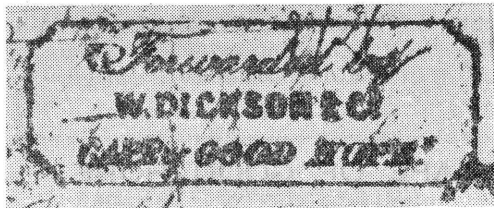 Forwarded by
W. DICKSON & Co.
CAPE GOOD HOPE.